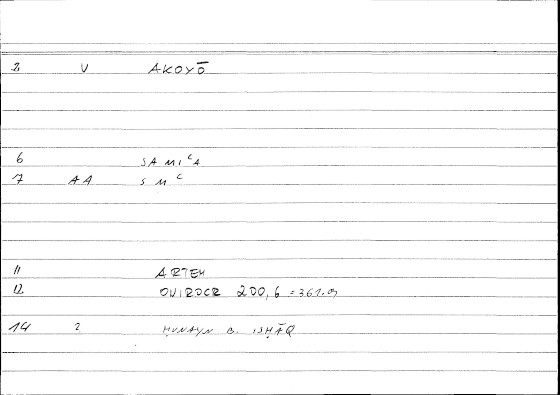 2 V AKOYŌ
6 SAMIᶜA
7 AA S M ᶜ
11 ARTEM
12 ONIROCR 200,6 = 361.
14 2 ḤUNAYN B. ISḤĀQ